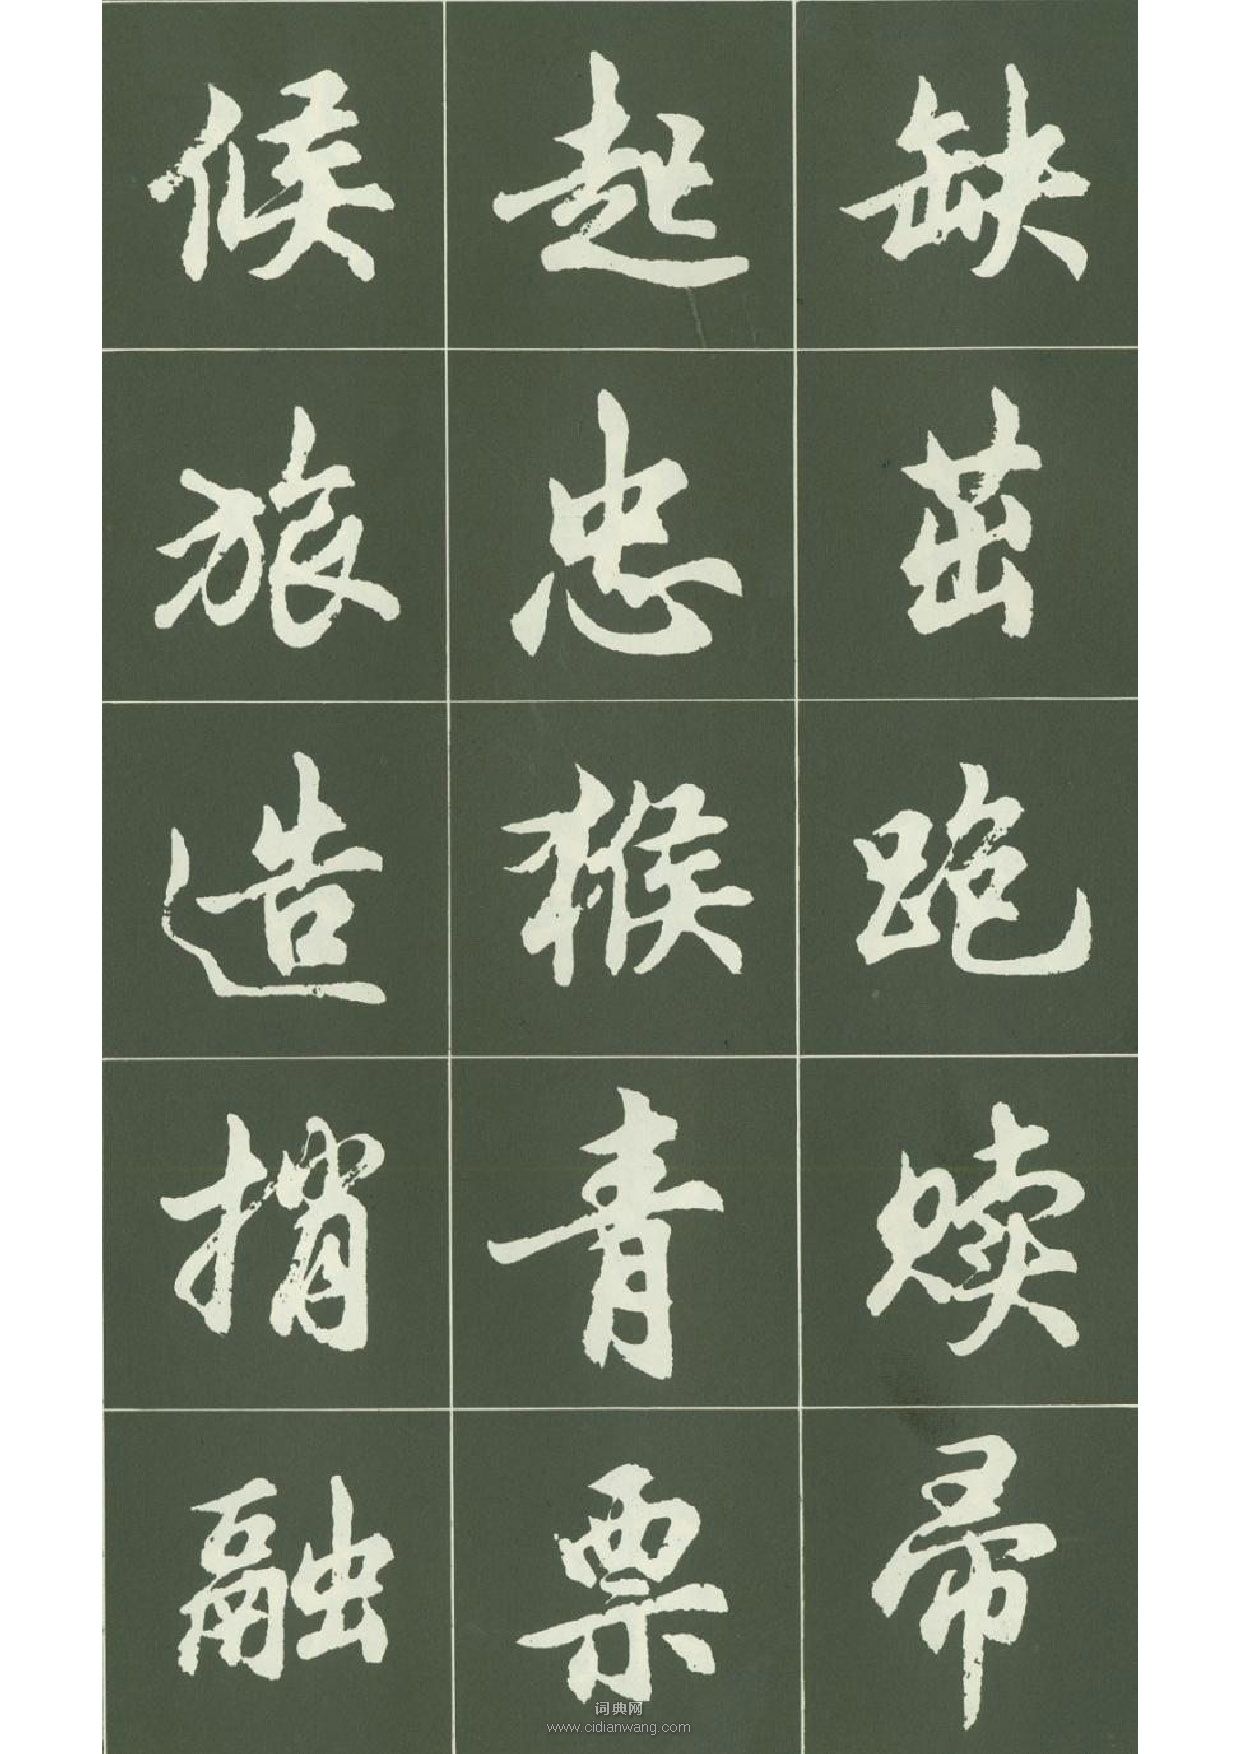 缺茁跑赎帚
起忠猴青票
候旅造捎融
词典网
www.cidianwang.com